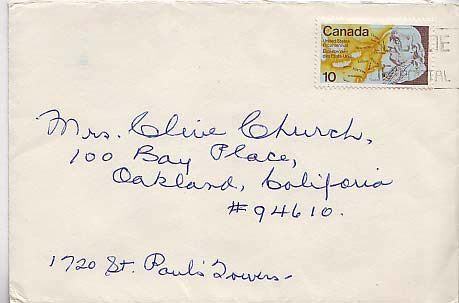 Canada
United States
Bicentennial
Bicentenaire
des États-Unis
10
TAL
Mrs. Clive Church,
100 Bay Place,
Oakland, Califoria
#94610.
1720 St. Paul's Towers-